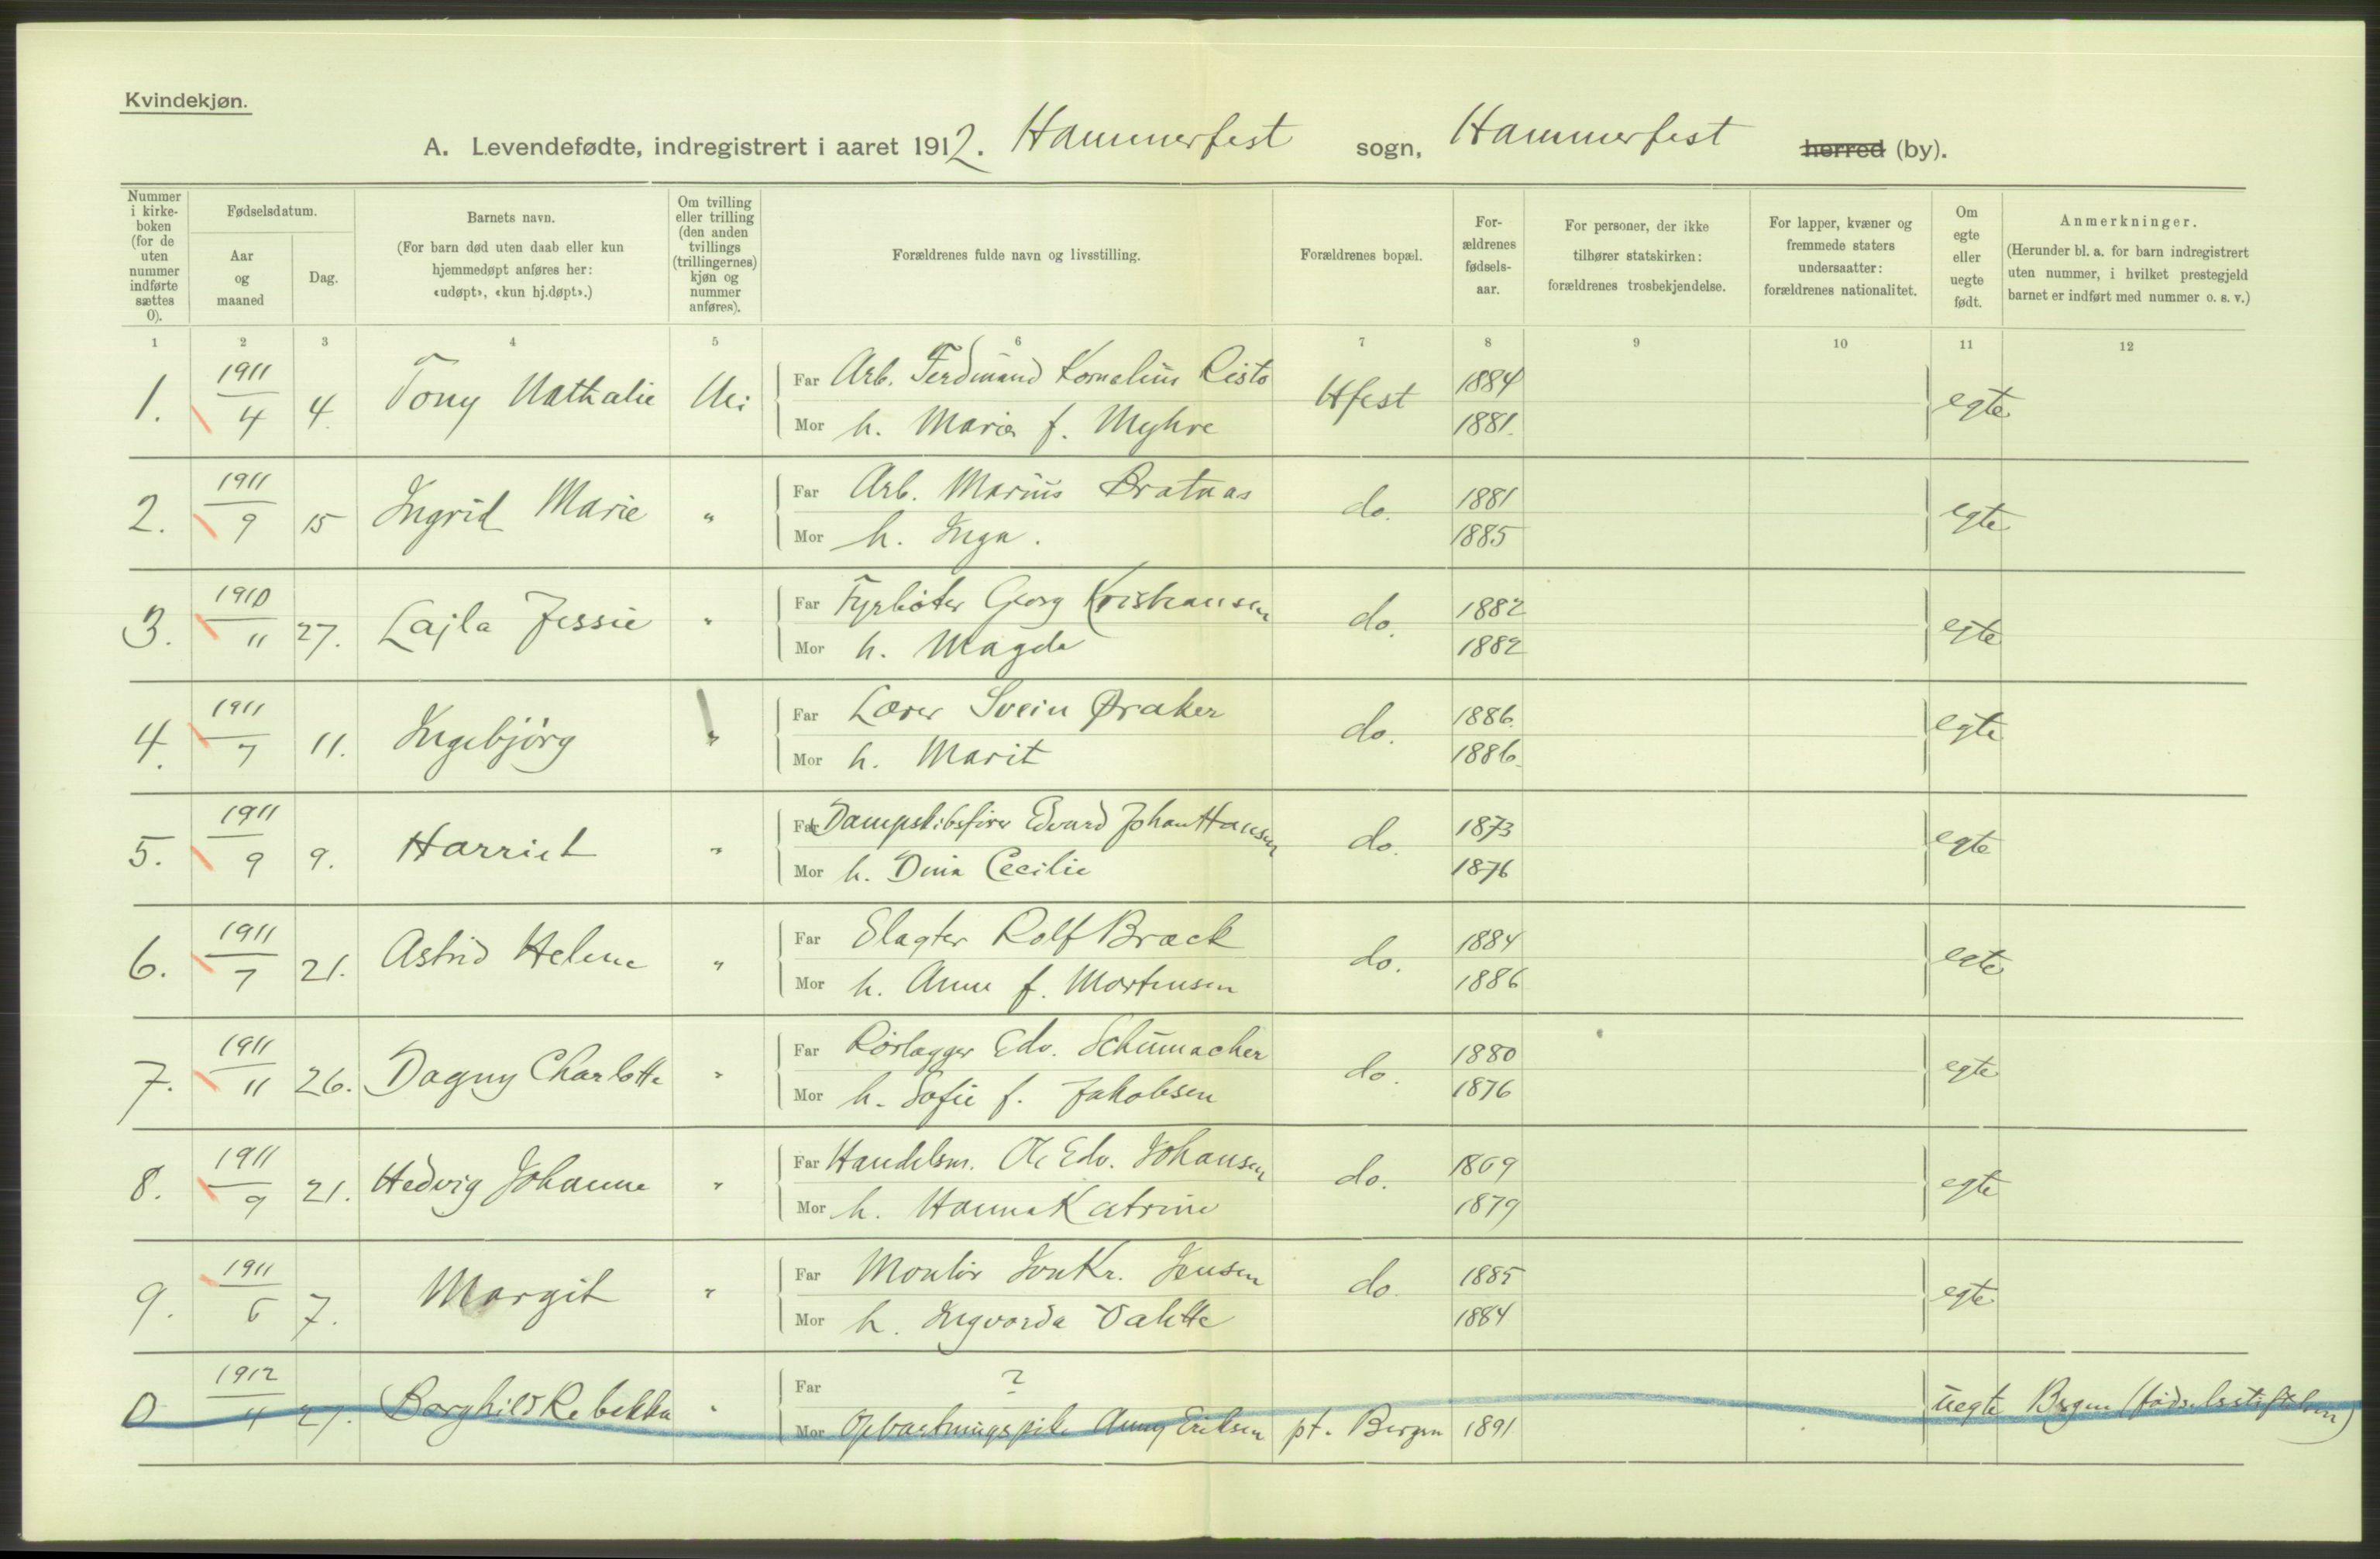 Kvindekjøn.
A. Levendefødte, indregistrert i aaret 1912. Hammerfest sogn, Hammerfest herred (by).
Nummer i kirkeboken (for de uten nummer indførte sættes 0).
Fødselsdatum.
Aar og maaned
Dag.
Barnets navn.
(For barn død uten daab eller kun hjemmedøpt anføres her: «udøpt», «kun hj.døpt».)
Om tvilling eller trilling (den anden tvillings (trillingernes) kjøn og nummer anføres).
Forældrenes fulde navn og livsstilling.
Forældrenes bopæl.
Forældrenes fødselsaar.
For personer, der ikke tilhører statskirken: forældrenes trosbekjendelse.
For lapper, kvæner og fremmede staters undersaatter: forældrenes nationalitet.
Om egte eller uegte født.
Anmerkninger.
(Herunder bl. a. for barn indregistrert uten nummer, i hvilket prestegjeld barnet er indført med nummer o. s. v.)
1 2 3 4 5 6 7 8 9 10 11 12
1. 1911/4 4. Tony Nathalie Nei Far Arb. Ferdinand Kornelius Risto Hfest 1884 egte
Mor h. Marie f. Myhre 1881.
2. 1911/9 15 Ingrid Marie " Far Arb. Marius Bratnas do. 1881 egte
Mor h. Inga. 1885
3. 1910/11 27. Lajla Jessie " Far Fyrbøter Georg Kristiansen do. 1882 egte
Mor h. Magda 1882
4. 1911/7 11. Ingebjörg " Far Lærer Svein Øraker do. 1886. egte
Mor h. Marit 1886.
5. 1911/9 9. Harriet " Far Dampskibsfører Edvard Johan Hansen do. 1873 egte
Mor h. Dina Cecilie 1876
6. 1911/7 21. Astrid Helene " Far Slagter Rolf Bræck do. 1884 egte
Mor h. Anna f. Mortensen 1886
7. 1911/11 26. Dagny Charlotte " Far Rørlægger Edv. Schumacher do. 1880 egte
Mor h. Sofie f. Jakobsen 1876
8. 1911/9 21. Hedvig Johanne " Far Handelsm. Ole Edv. Johansen do. 1869 egte
Mor h. Hanna Katrine 1879
9. 1911/6 7. Margit " Far Montör Jon Kr. Jensen do. 1885 egte
Mor h. Ingvarda 1884
0 1912/4 27. Borghild Rebekka " Far ? uegte Bergen (fødselsstiftelsen)
Mor Opvartningspike Anny Eriksen pt. Bergen 1891